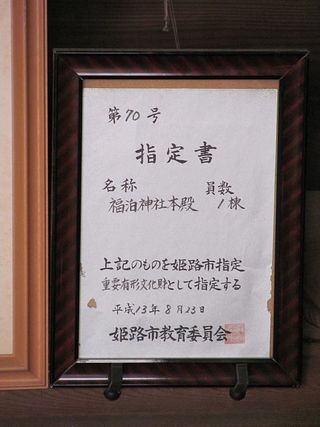 第70号
指定書
名称 員数
福泊神社本殿 1棟
上記のものを姫路市指定
重要有形文化財として指定する
平成13年8月23日
姫路市教育委員会